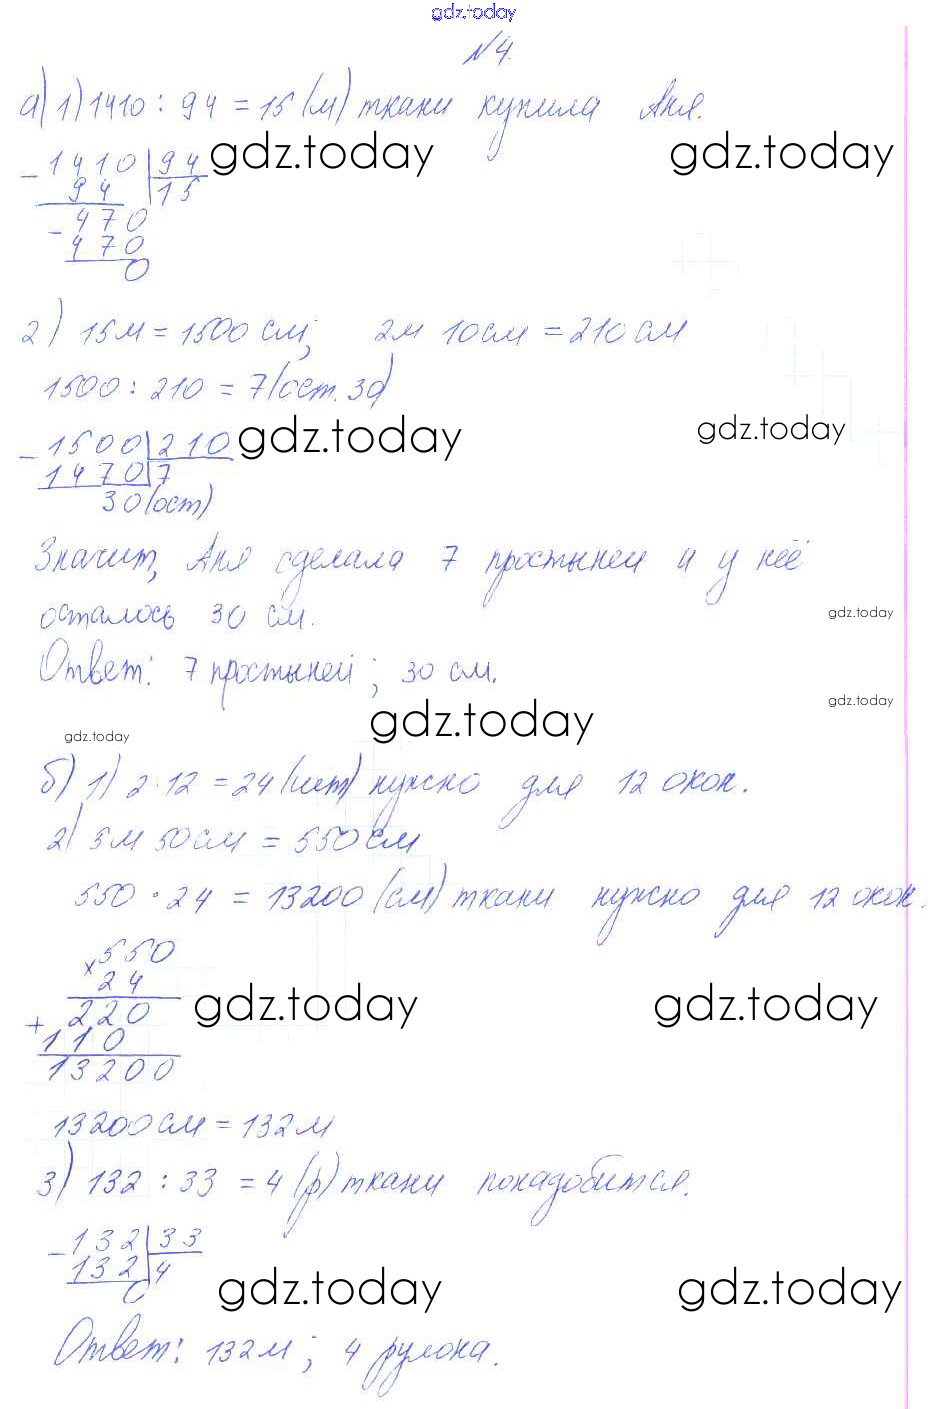 gdz.today
№4.
а) 1) 1410 : 94 = 15 (м) ткани купила Аня.
- 1410 | 94 gdz.today gdz.today
94 15
- 470
470
0
2) 15м = 1500 см; 2м 10см = 210 см
1500 : 210 = 7 (ост. 30)
- 1500 | 210 gdz.today gdz.today
1470 7
30 (ост)
Значит, Аня сделала 7 простыней и у неё
осталось 30 см.
gdz.today
Ответ: 7 простыней; 30 см.
gdz.today
gdz.today
gdz.today
б) 1) 2 · 12 = 24 (шт) нужно для 12 окон.
2) 5м 50см = 550 см
550 · 24 = 13200 (см) ткани нужно для 12 окон.
× 550
24 gdz.today gdz.today
+ 220
110
13200
13200 см = 132 м
3) 132 : 33 = 4 (р) ткани понадобится.
- 132 | 33
132 4 gdz.today gdz.today
0
Ответ: 132 м; 4 рулона.